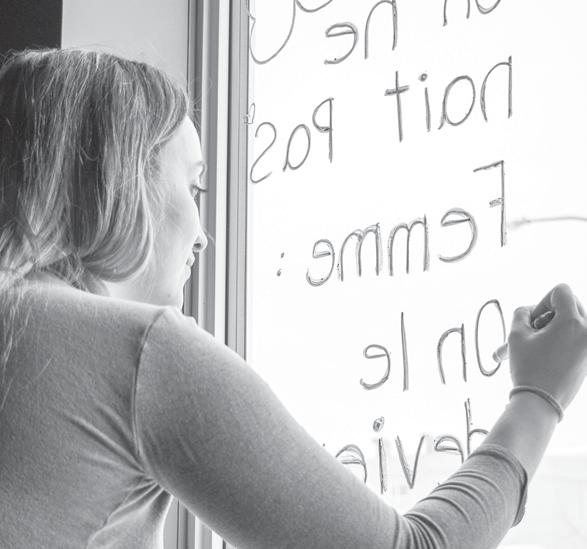 On ne
nait Pas
Femme :
On le
devie